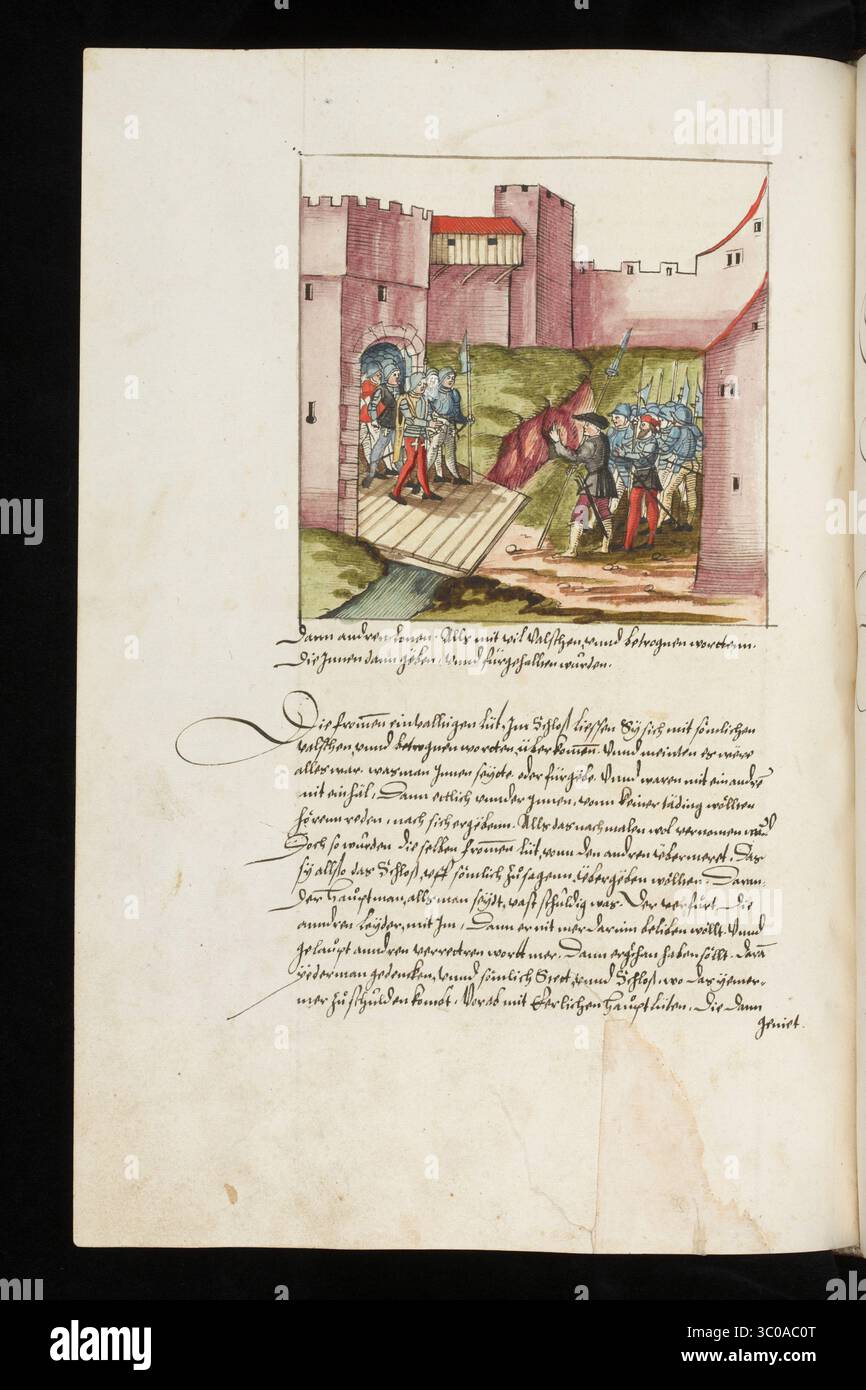 Dann andren denen. Alls mit vil valschen, unnd betrognen wortenn.
Die Jnnen dann geben, unnd fürgehallten wurden.
Die frommen einvalltigen lüt, Jm Schloß liessen Sy sich mit sömlichen
valschen, unnd betrognen worten, überkomen. Unnd meinten es were
alles war. was man Jnnen seyte. oder fürgebe. Unnd waren mit ein andren
nit einhäl, Dann ettlich unnder Jnnen, vonn keiner täding wöllten
hören reden, noch sich ergebenn. Alls das nachmalen wol vernomen ward
Doch so wurden die selben frommen lüt, vonn den andren übermeret. Das
sy allso das Schloß, uff sömlich zusagenn, übergeben wöllten. Daran
der houptman, alls man seyt, vast schuldig was. Der verfurt, die
anndren leyder, mit Jm, Dann er nit mer darinn beliben wöllt. Unnd
geloupt anndren verretren wort mer. Dann er gethan haben söllt. Daran
yederman gedencken, unnd sömlich Stett, unnd Schloß, wo das yemer-
mer zu schulden kombt. Vorab mit Eerlichen houptlüten, Die dann
geniet.
alamy
alamy
Image ID: 3C0AC0T
www.alamy.com